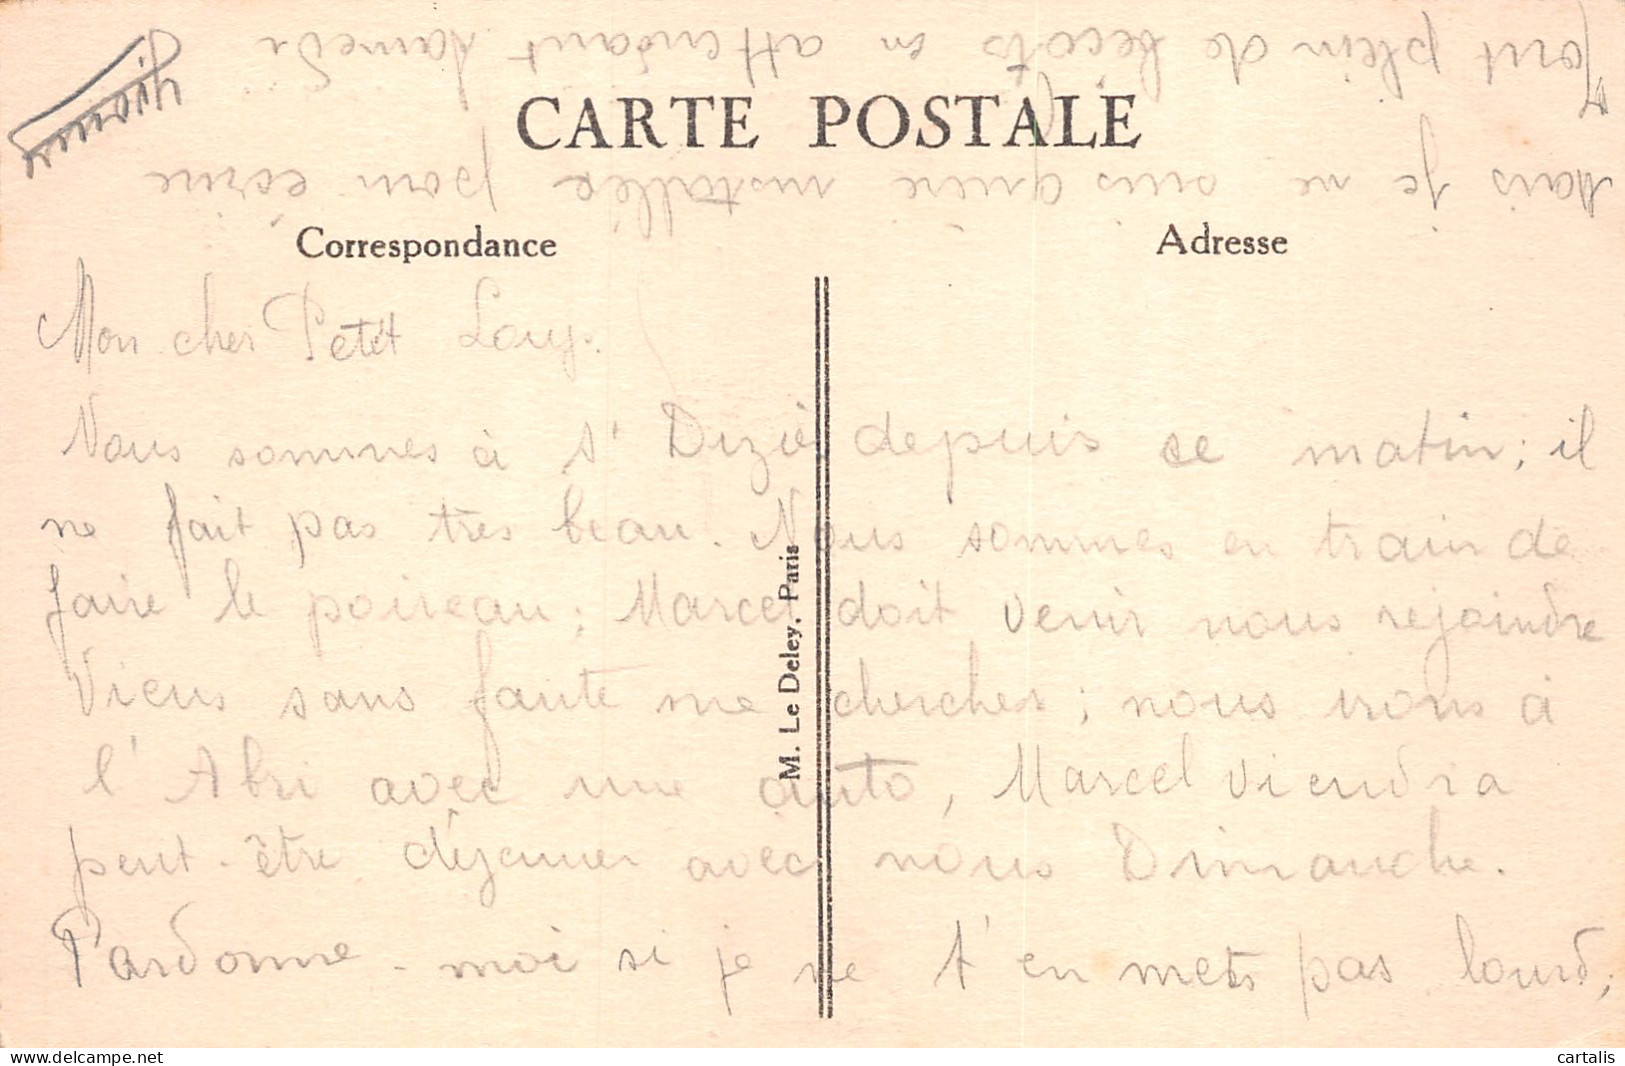 CARTE POSTALE
Correspondance
Adresse
Mon cher Petit Loup.
Nous sommes à St Dizier depuis ce matin; il
ne fait pas très beau. Nous sommes en train de
faire le poireau; Marcel doit venir nous rejoindre
Viens sans faute me chercher; nous irons à
l'Abri avec une auto, Marcel viendra
peut-être déjeuner avec nous Dimanche.
Pardonne-moi si je ne t'en mets pas lourd;
Mais je ne suis guère installée pour écrire
Tout plein de bécots en attendant samedi
M. Le Deley, Paris
cartalis
www.delcampe.net